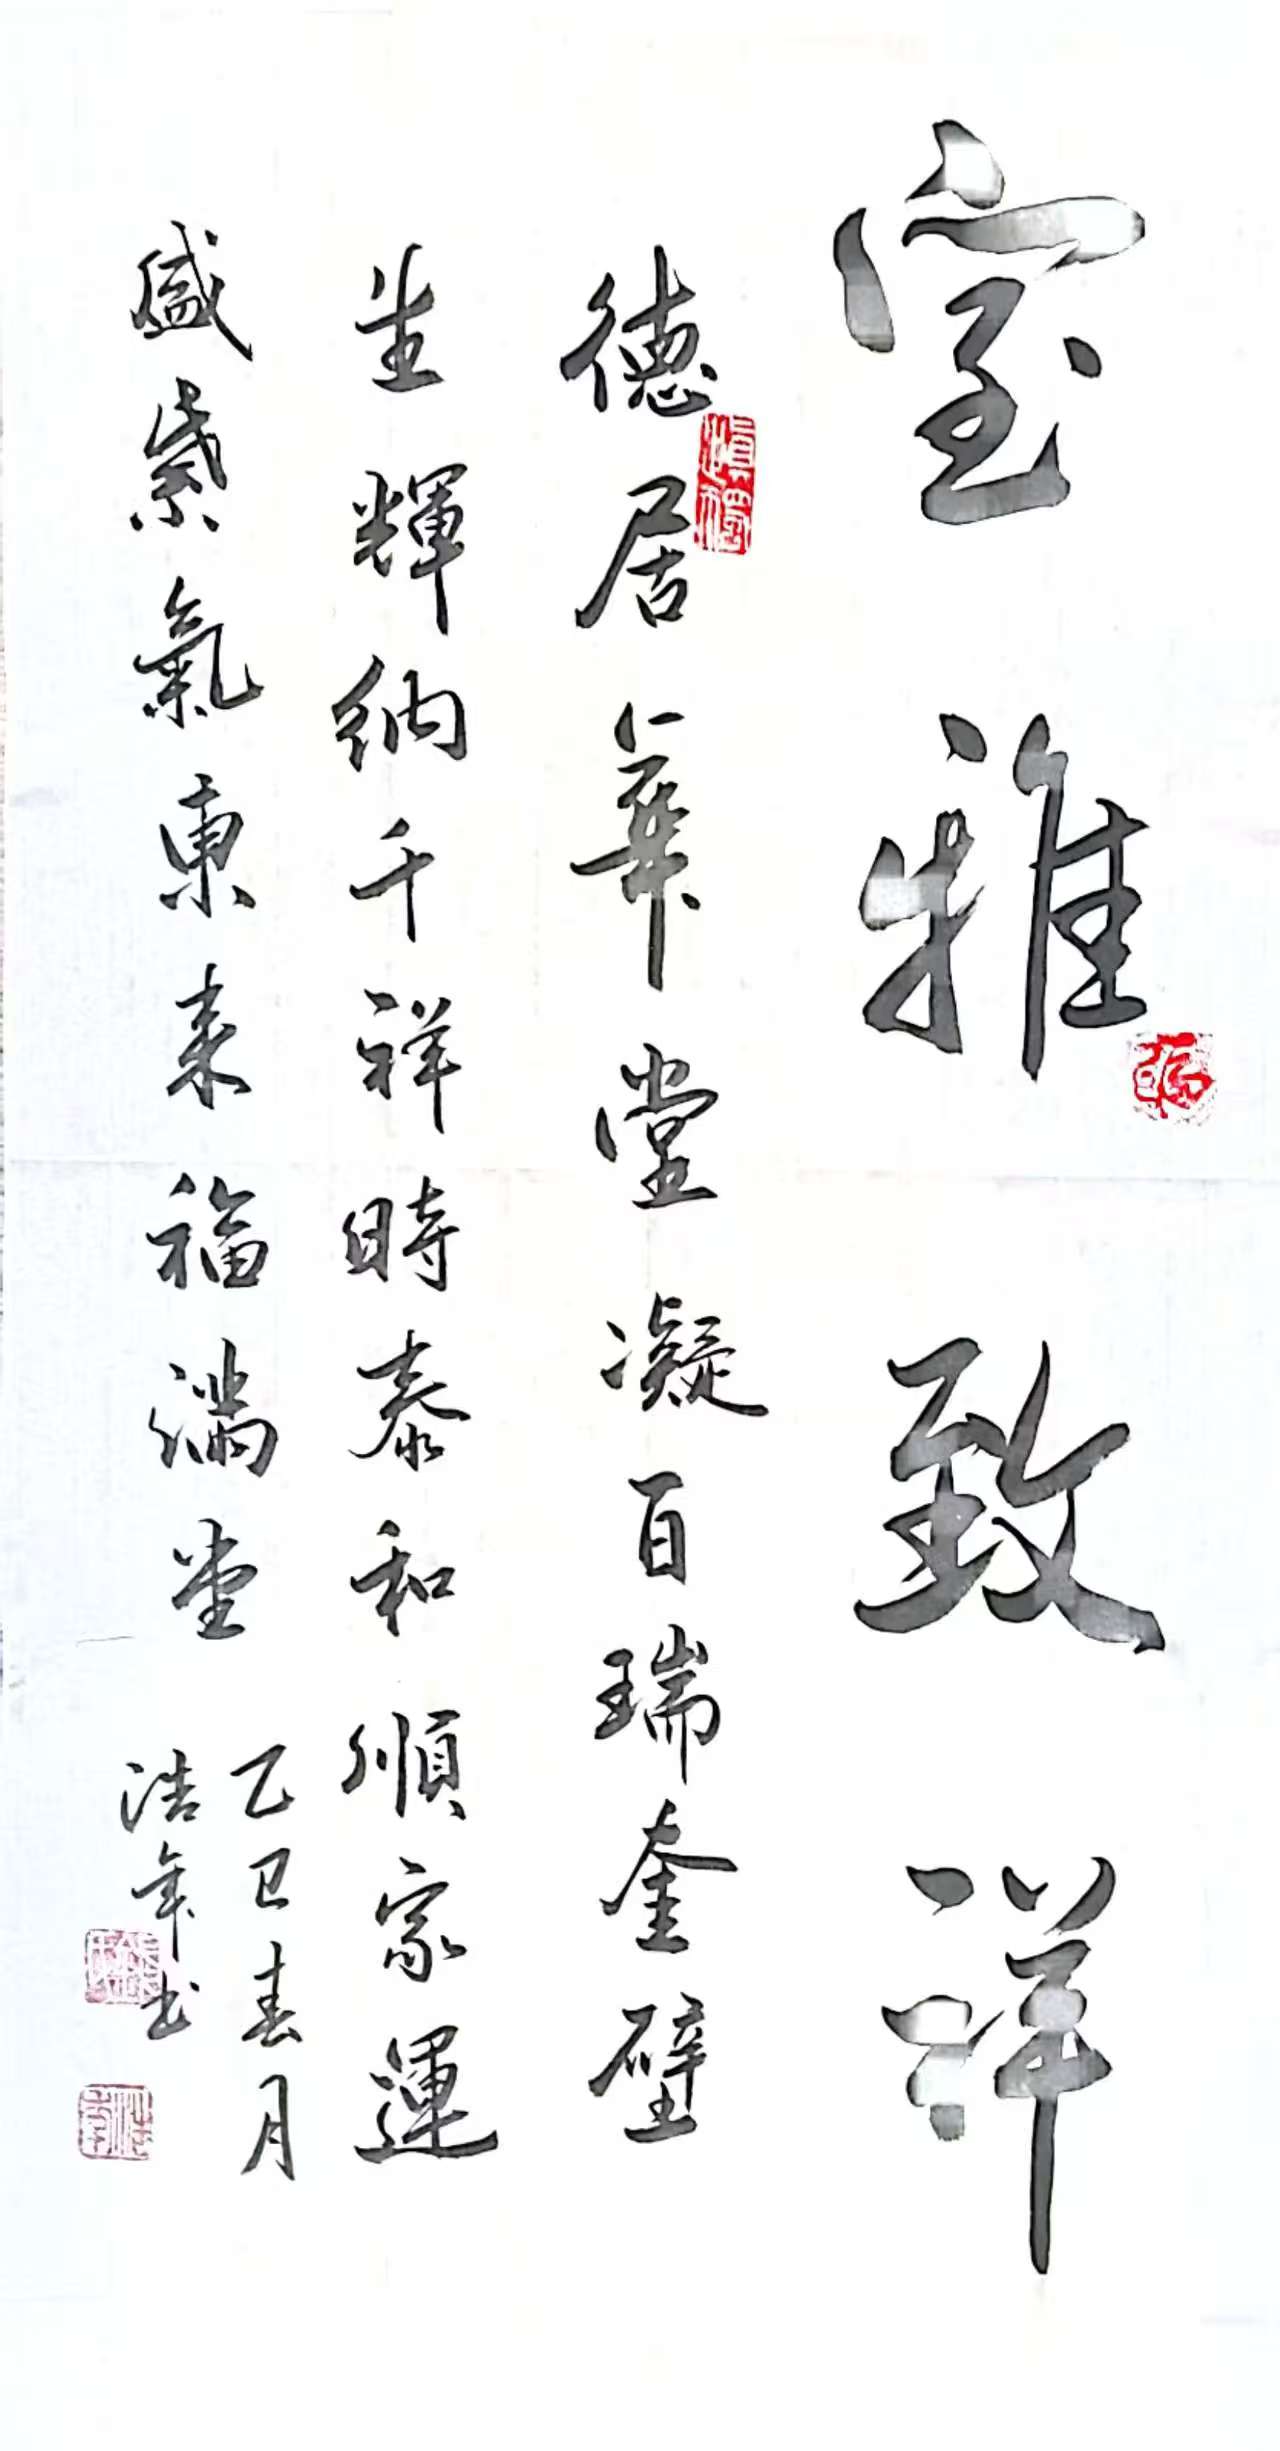 室雅致祥
德居華堂凝百瑞奎壁
生輝納千祥時泰和順家運
盛紫氣東来福满堂
乙巳春月
浩年书
慎獨